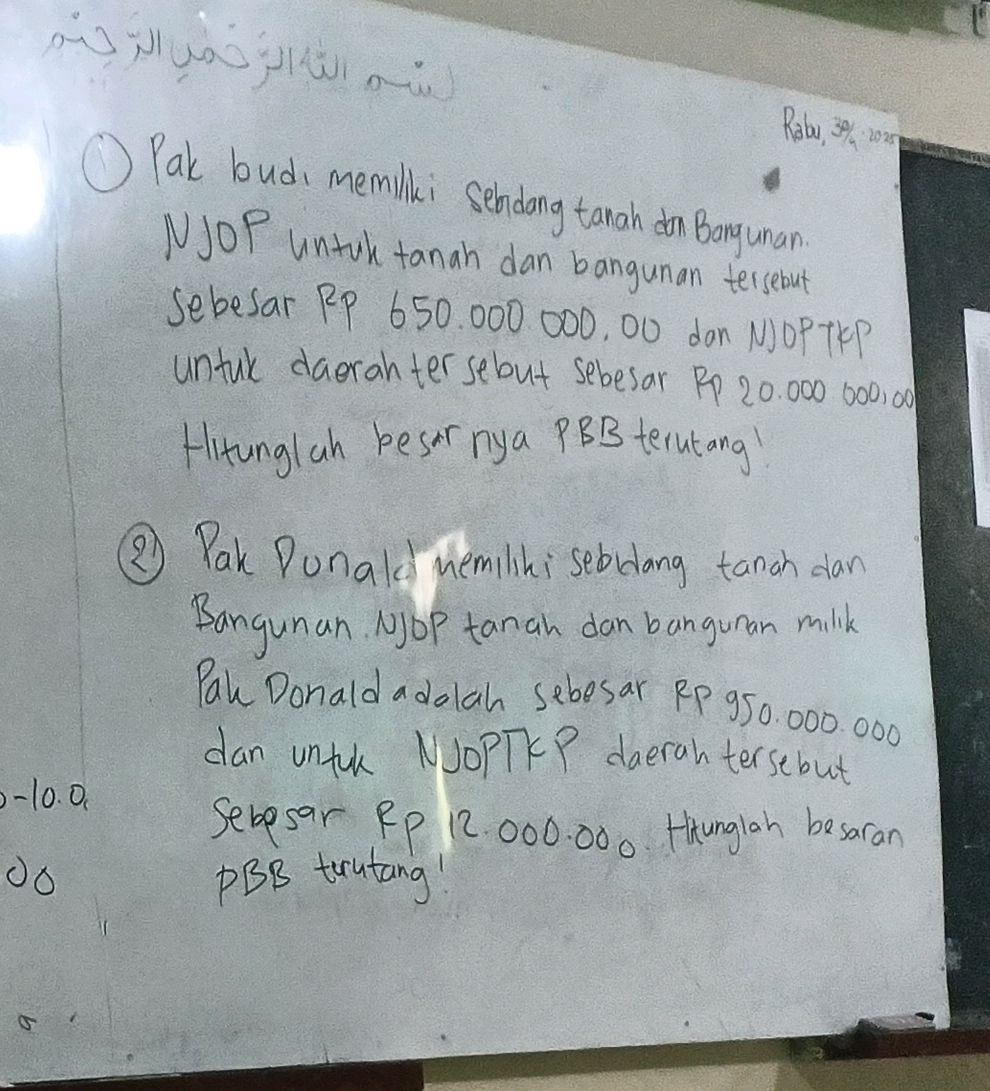 بسم الله الرحمن الرحيم
Rabu, 30/4-2025
① Pak budi memiliki sebidang tanah dan Bangunan.
NJOP untuk tanah dan bangunan tersebut
sebesar Rp 650.000.000,00 dan NJOPTKP
untuk daerah tersebut sebesar Rp 20.000.000,00
Hitunglah besarnya PBB terutang!
② Pak Donald memiliki sebidang tanah dan
Bangunan. NJOP tanah dan bangunan milik
Pak Donald adalah sebesar Rp 950.000.000
dan untuk NJOPTKP daerah tersebut
sebesar Rp 12.000.000. Hitunglah besaran
PBB terutang!
-10.0
00